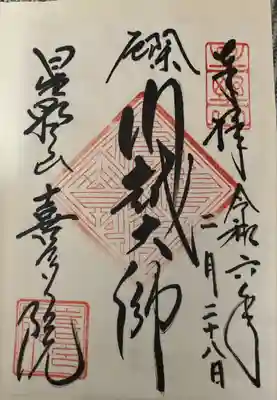 奉拝 令和六年
二月二十八日
川越大師
星野山 喜多院